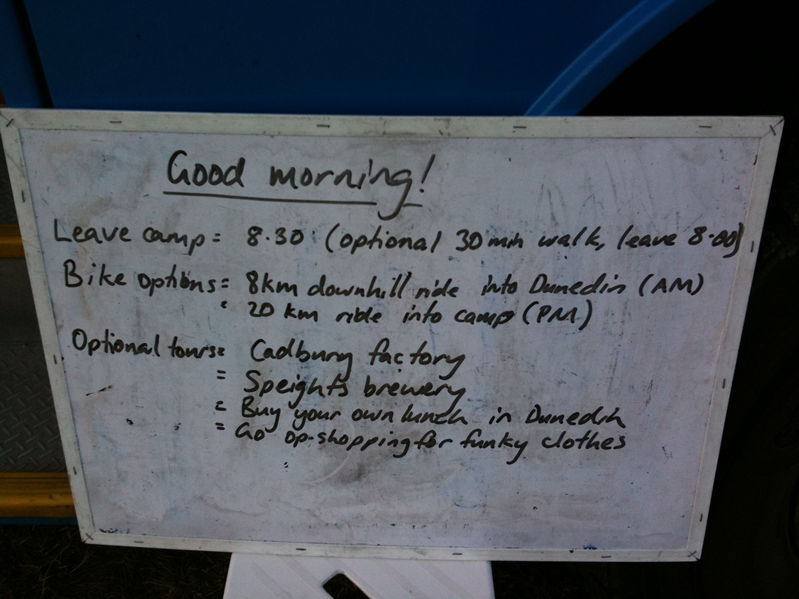 Good morning!
Leave camp = 8.30 (optional 30 min walk, leave 8.00)
Bike options = 8km downhill ride into Dunedin (AM)
= 20 km ride into camp (PM)
Optional tours = Cadbury factory
= Speights brewery
= Buy your own lunch in Dunedin
= Go op-shopping for funky clothes